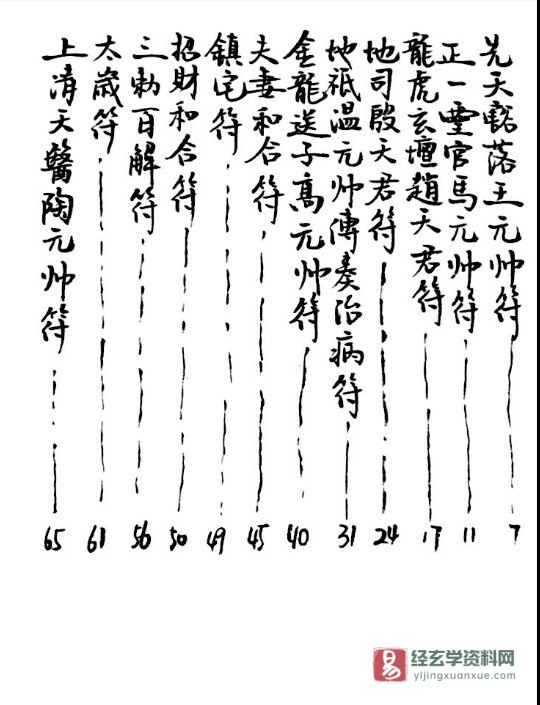 先天豁落王元帅符 7
正一靈官馬元帅符 11
龍虎玄壇趙天君符 17
地司殷天君符 24
地祇温元帅傳奏治病符 31
金龍送子高元帅符 40
夫妻和合符 45
鎮宅符 49
招財和合符 50
三勅百解符 56
太歲符 61
上清天醫陶元帅符 65
易 经玄学资料网
yijingxuanxue.com